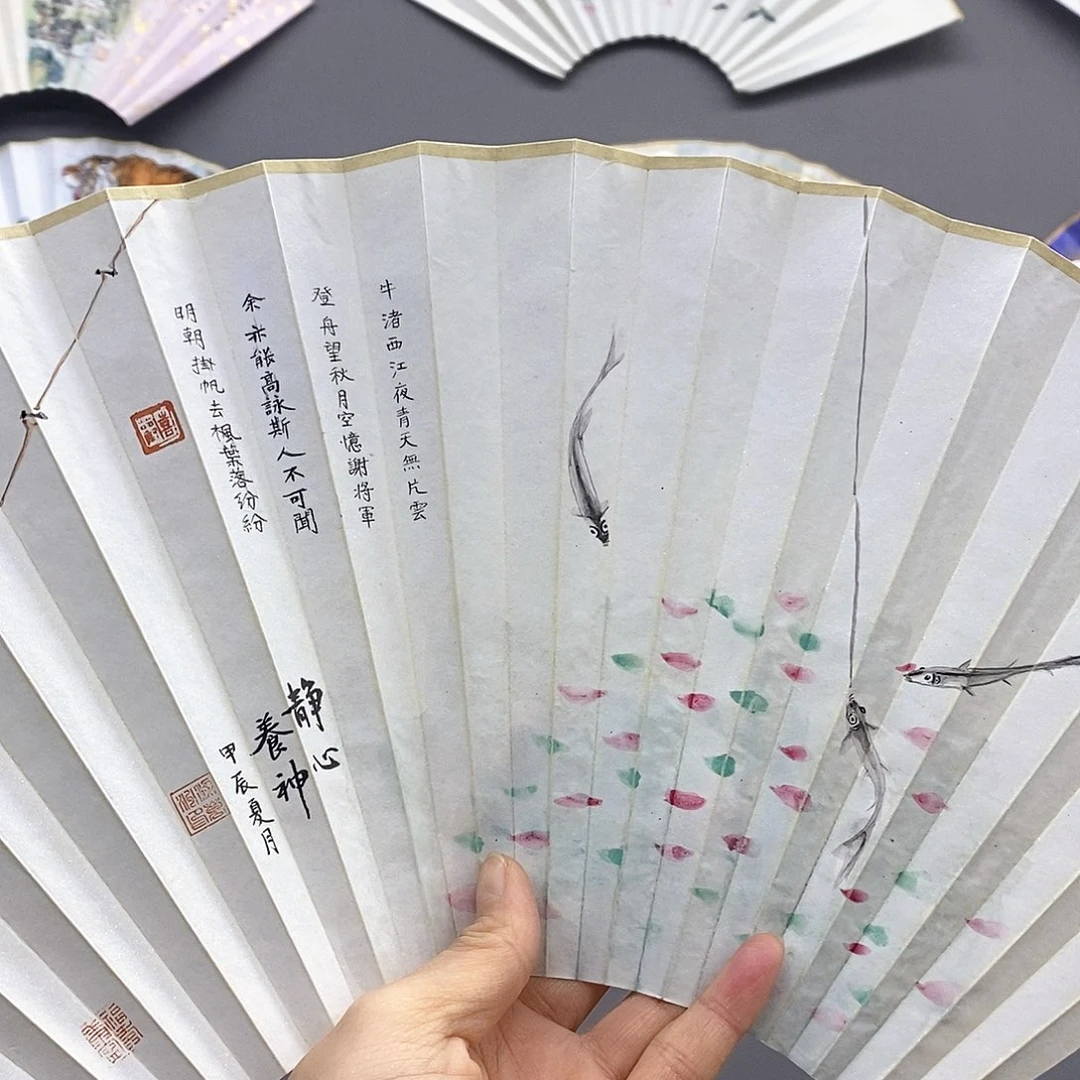 牛渚西江夜青天無片雲
登舟望秋月空憶謝將軍
余亦能高詠斯人不可聞
明朝掛帆去楓葉落紛紛
靜心
養神
甲辰夏月